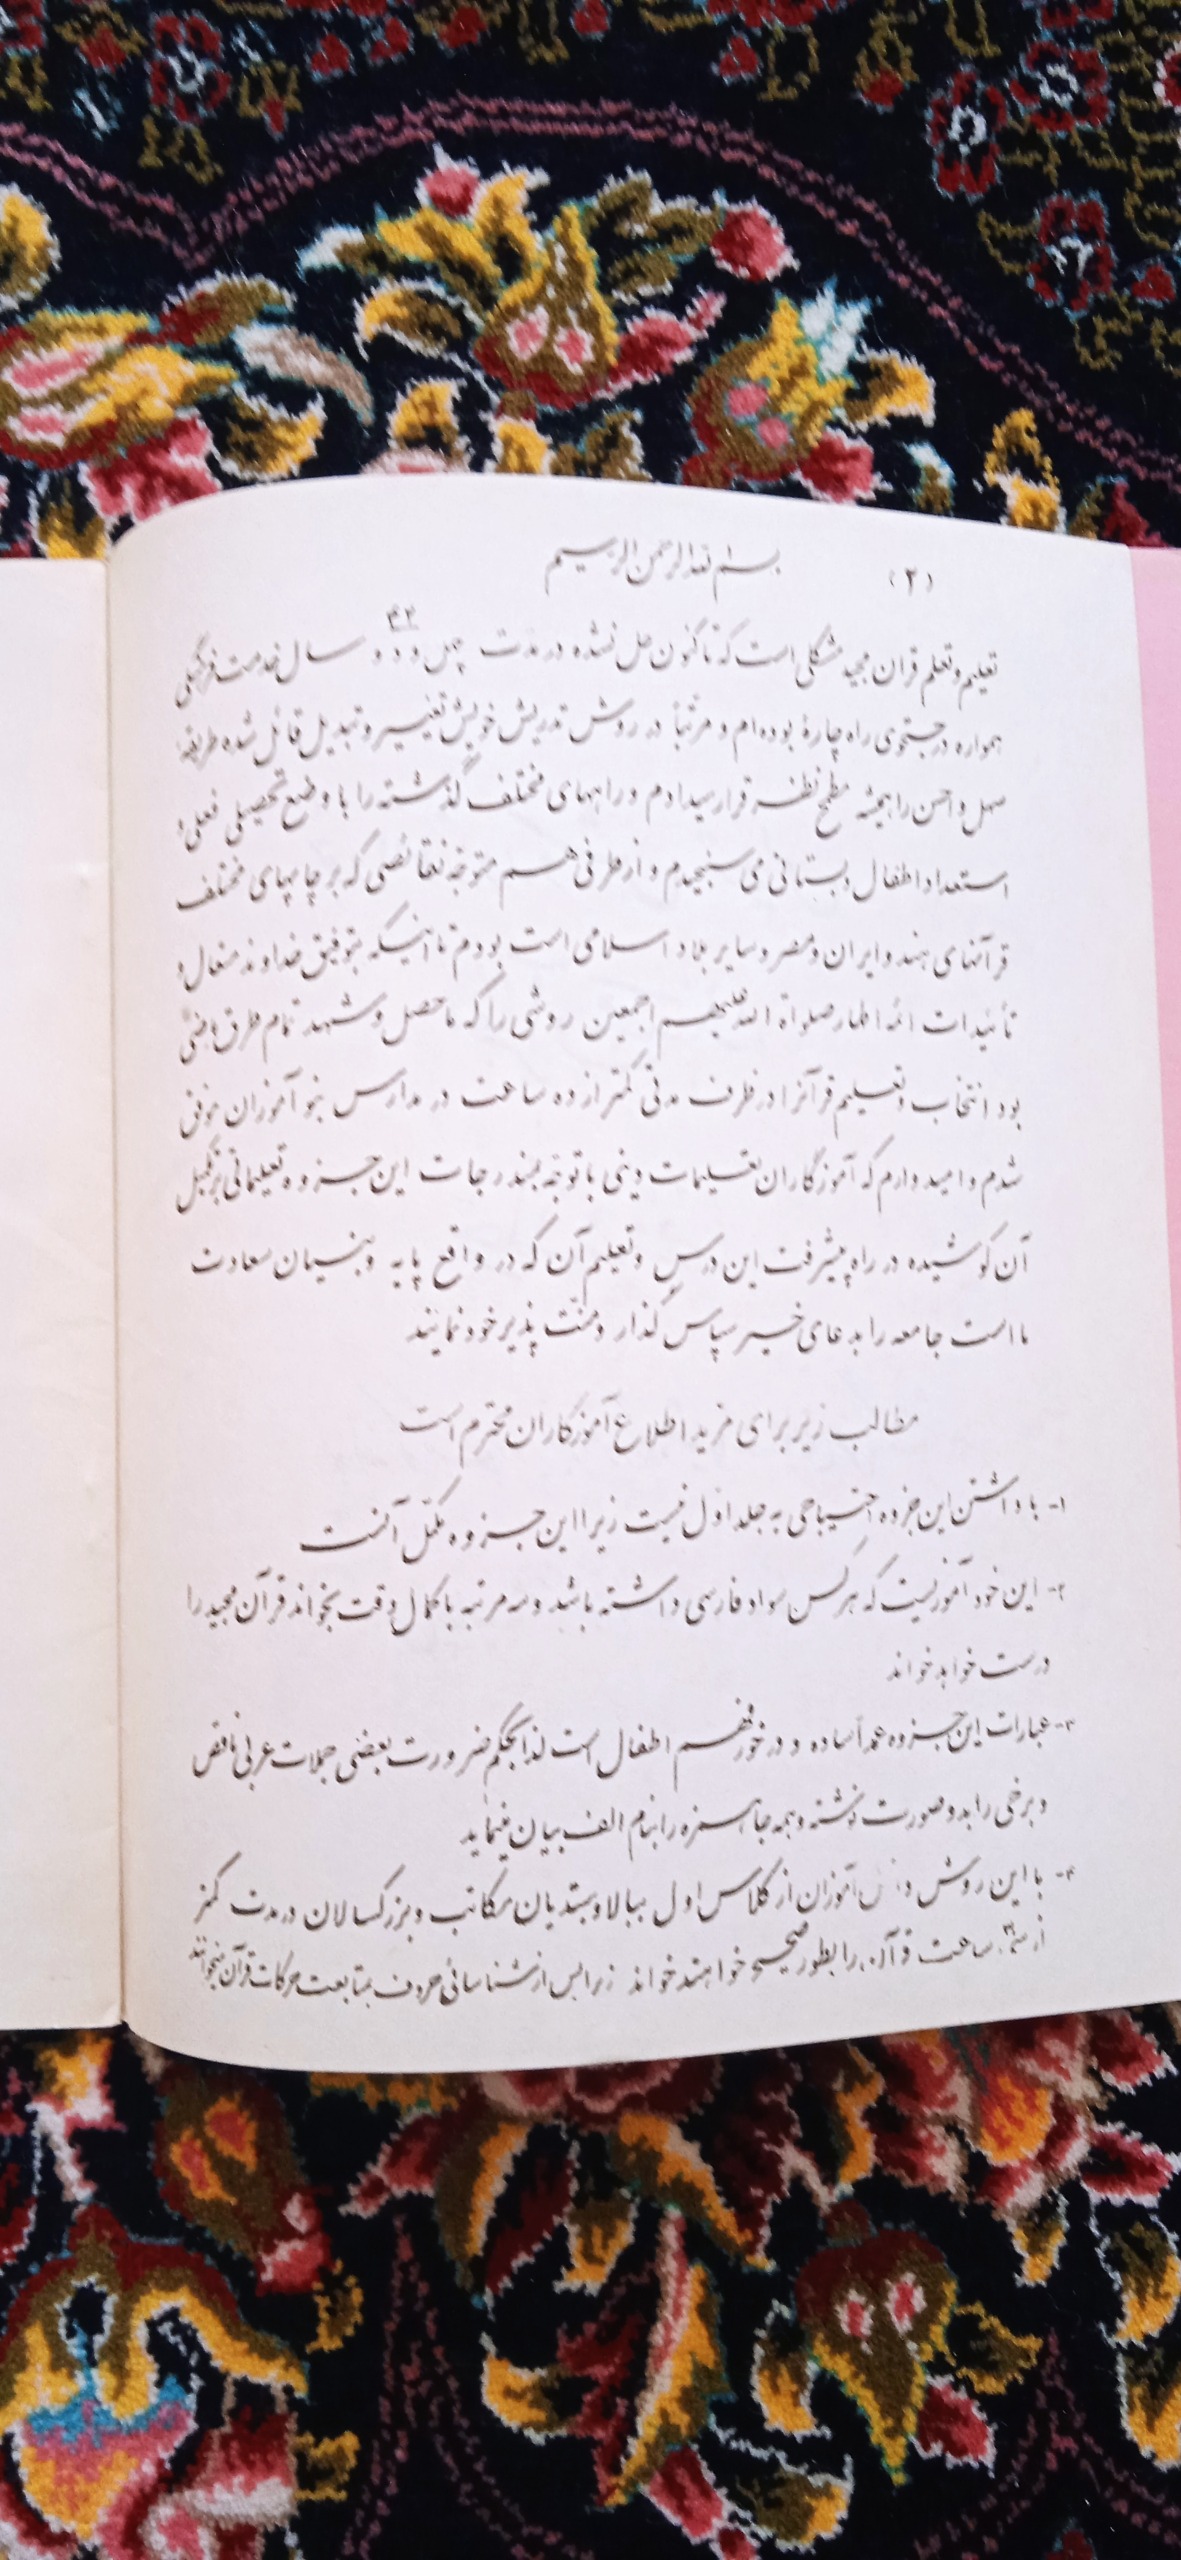 (۲)
بسم الله الرحمن الرحیم
۴۲
تعلیم و تعلم قران مجید مشکلی است که تا کنون حل نشده در مدت چهل و دو سال خدمت فرهنگی
همواره در جستجوی راه چارهٔ بوده‌ام و مرتباً در روش تدریش خویش تغییر و تبدیل قائل شده طریقه
سهل و احسن را همیشه مطمح نظر قرار میدادم و راههای مختلف گذشته را با وضع تحصیلی فعلی و
استعداد اطفال دبستانی می سنجیدم و از طرفی هم متوجه نقائصی که بر چاپهای مختلف
قرآنهای هند و ایران و مصر و سایر بلاد اسلامی است بودم تا اینکه بتوفیق خداوند متعال و
تأئیدات ائمه اطهار صلواة الله علیهم اجمعین روشی را که ماحصل و شهد تمام طرق ماضی
بود انتخاب و تعلیم قرآنرا در ظرف مدتی کمتر از ده ساعت در مدارس بنو آموزان موفق
شدم و امیدوارم که آموزگاران تعلیمات دینی با توجه بمندرجات این جزوه تعلیماتی بر تکمیل
آن کوشیده در راه پیشرفت این درس و تعلیم آن که در واقع پایه و بنیان سعادت
ما است جامعه را بدعای خیر سپاس گذار و منت پذیر خود نمایند
مطالب زیر برای مزید اطلاع آموزگاران محترم است
۱- با داشتن این جزوه احتیاجی به جلد اول نیست زیرا این جزوه مکمل آنست
۲- این خود آموزیست که هر کس سواد فارسی داشته باشد و سه مرتبه با کمال دقت بخواند قرآن مجید را
درست خواهد خواند
۳- عبارات این جزوه عمداً ساده و در خور فهم اطفال است لذا بحکم ضرورت بعضی جملات عربی ناقص
و برخی را بدو صورت نوشته و همه جا همزه را بنام الف بیان مینماید
۴- با این روش دانش آموزان از کلاس اول ببالا و مبتدیان مکاتب و بزرگسالان در مدت کمتر
از ساعت قرآن را بطور صحیح خواهند خواند زیرا پس از شناسائی حروف بمتابعت حرکات قرآن میخوانند